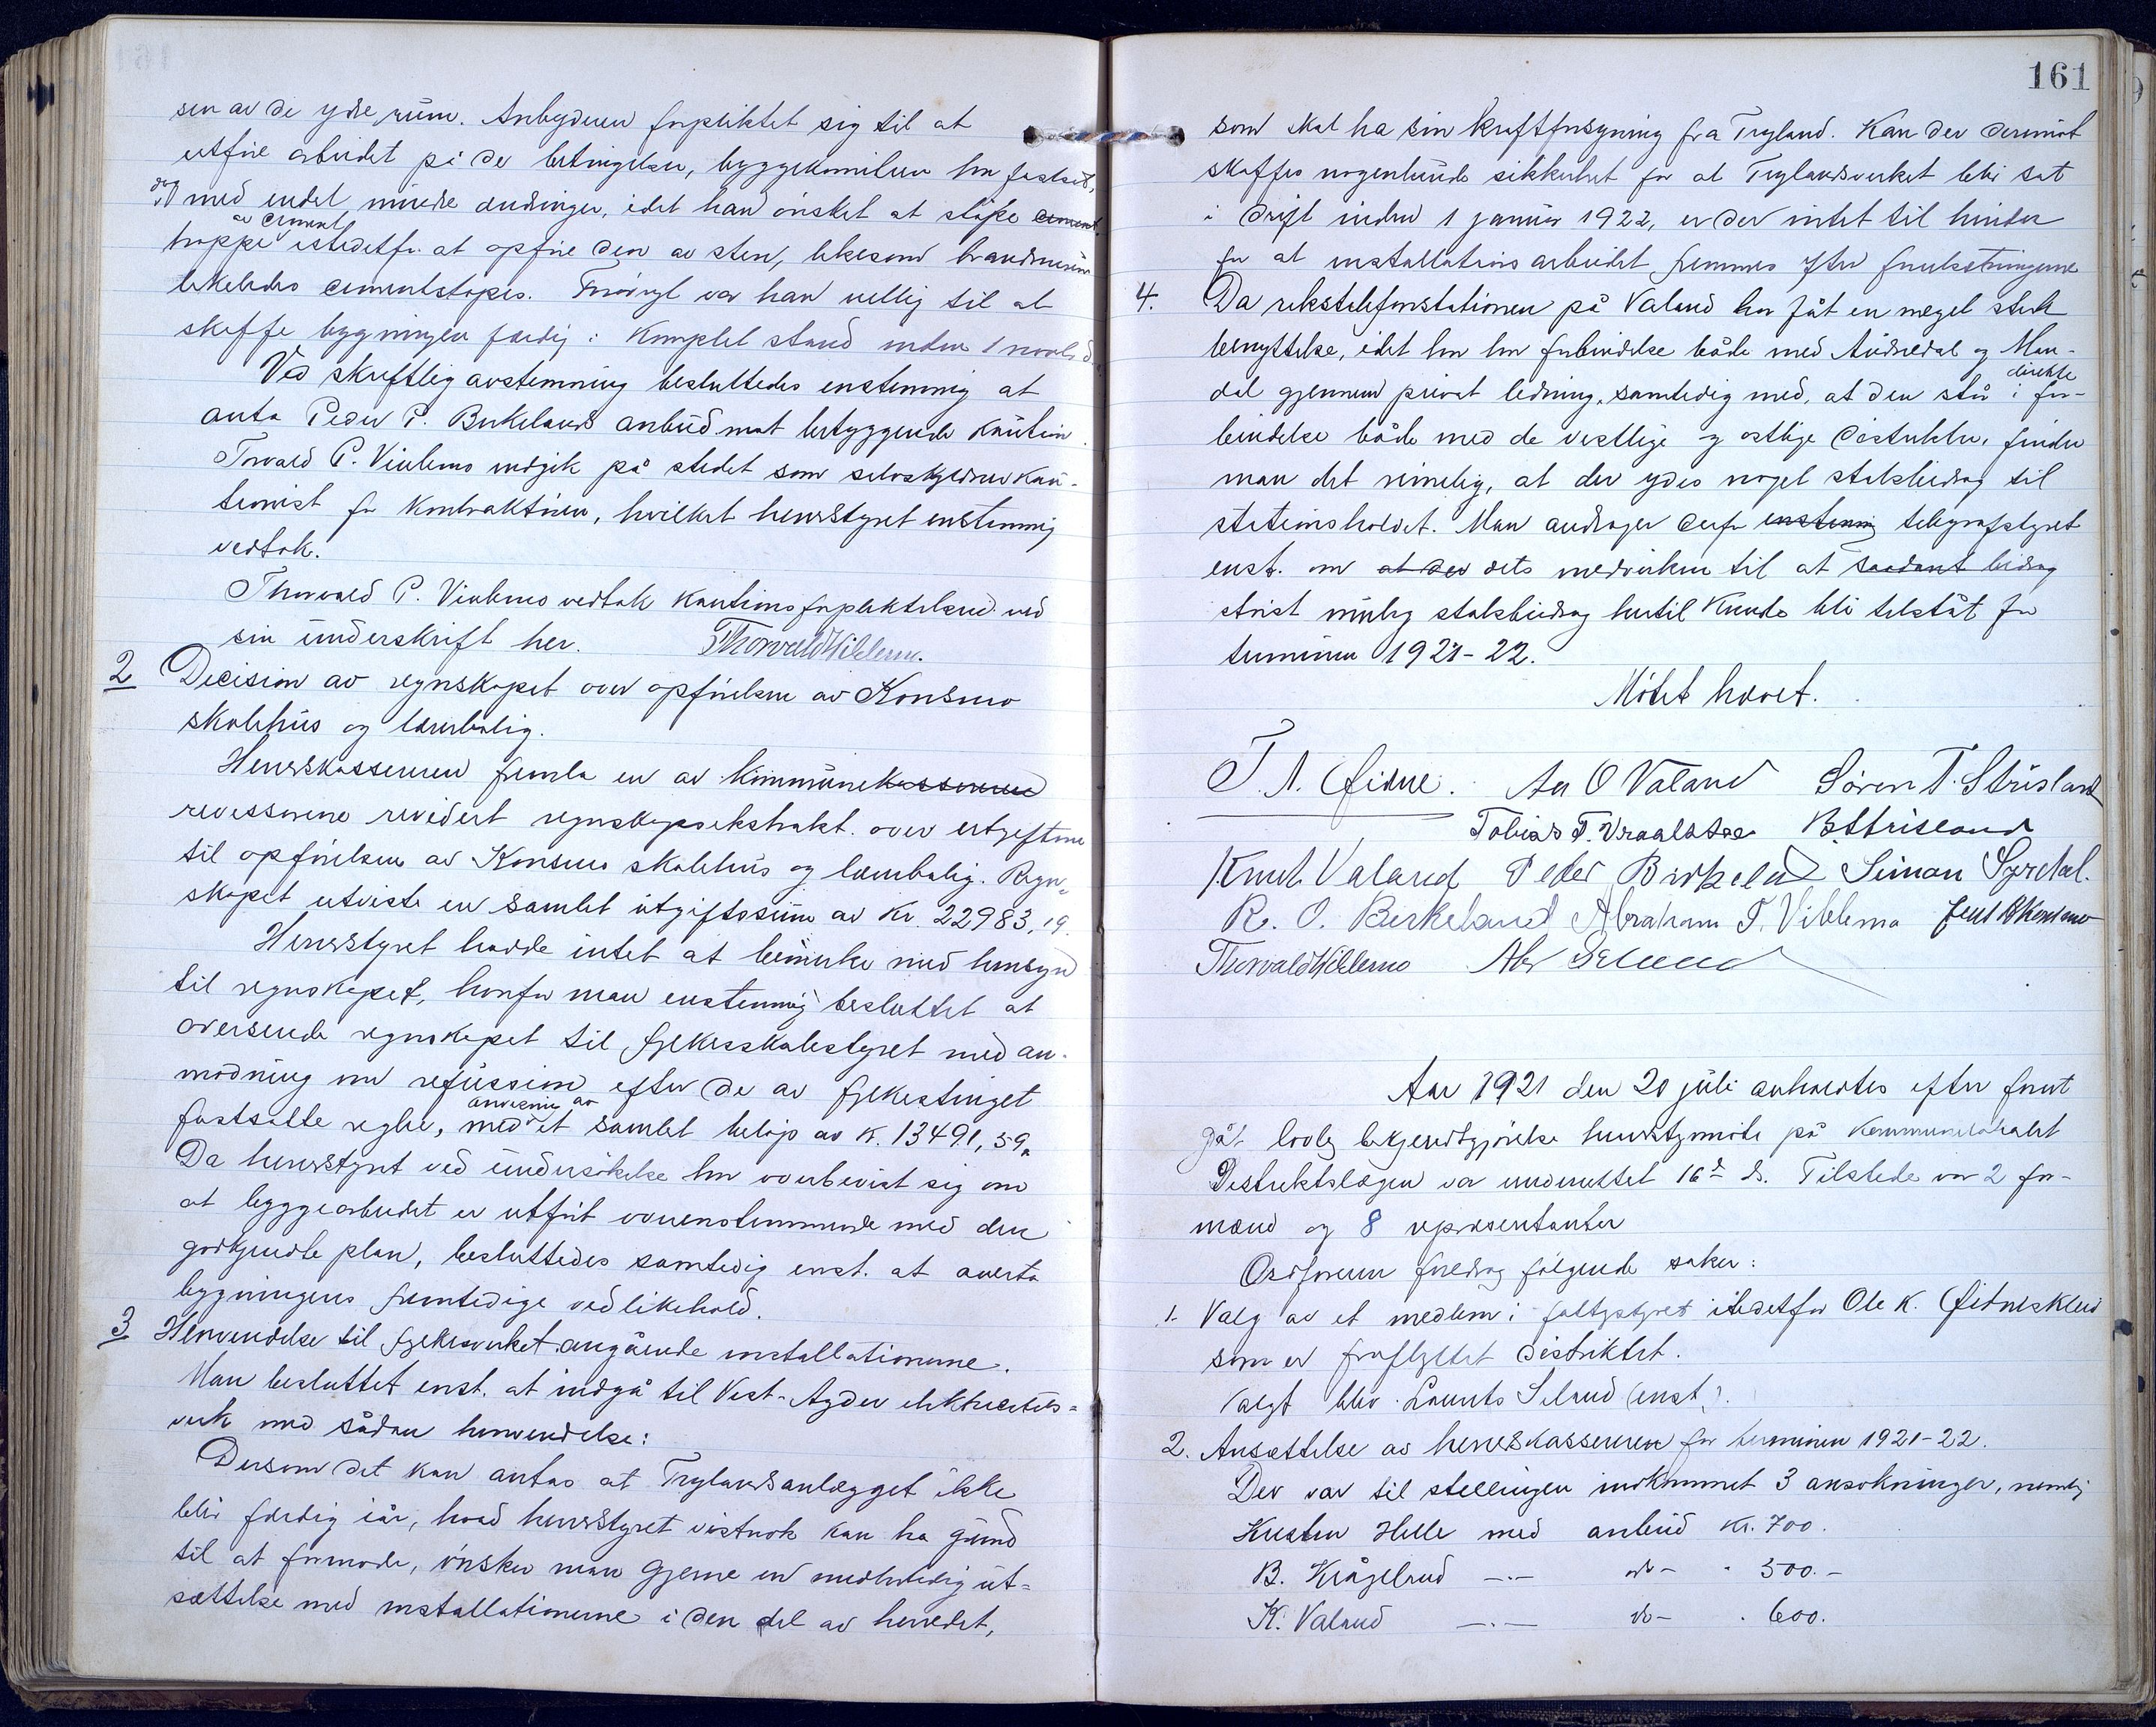 sen av de ydre rum. Anbyderen forpliktet sig til at
utføre arbeidet på de betingelser, byggekomiteen har fastsat,
dog med endel mindre ændringer, idet han ønsket at støpe cement
trappe av cement istedetfor at opføre den av sten, likesom brandmuren
likeledes cementstøpes. Forøvrigt var han villig til at
skaffe bygningen færdig i komplet stand inden 1 novbr d.
Ved skriftlig avstemning besluttedes enstemmig at
anta Peder P. Birkelands anbud mot betryggende kaution.
Torvald P. Viblemo indgik på stedet som selvskyldnerkau-
tionist for kontraktøren, hvilket herredstyret enstemmig
vedtok.
Thorvald P. Viblemo vedtok kautionsforpliktelsen ved
sin underskrift her. Thorvald Viblemo.
2 Decision av regnskapet over opførelsen av Konsmo
skolehus og lærerbolig.
Herredskassereren fremla en av kommunekassereren
revisorene revidert regnskapsekstrakt over utgiftene
til opførelsen av Konsmo skolehus og lærerbolig. Regn-
skapet utviste en samlet utgiftssum av kr. 22983,19.
Herredstyret hadde intet at bemerke med hensyn
til regnskapet, hvorfor man enstemmig besluttet at
oversende regnskapet til fylkesskolestyret med an-
modning om refusion efter de av fylkestinget
fastsatte regler, med anvisning av et samlet beløp av kr. 13491,59.
Da herredstyret ved undersøkelse har overbevist sig om
at byggearbeidet er utført overensstemmende med den
godkjendte plan, besluttedes samtidig enst. at overta
bygningens fremtidige vedlikehold.
3 Henvendelse til fylkesverket angående installationerne.
Man besluttet enst. at indgå til Vest-Agder elektricitets-
verk med sådan henvendelse:
Dersom det kan antas at Trylandsanlægget ikke
blir færdig iår, hvad herredstyret vistnok kan ha grund
til at formode, ønsker man gjerne en midlertidig ut-
sættelse med installationerne i den del av herredet,
161
som skal ha sin kraftforsyning fra Tryland. Kan der derimot
skaffes nogenlunde sikkerhet for at Trylandsverket blir sat
i drift inden 1 januar 1922, er der intet til hinder
for at installationsarbeidet fremmes efter forutsætningerne
4. Da rikstelefonstationen på Valand har fåt en meget sterk
benyttelse, idet den har forbindelse både med Audnedal og Man-
dal gjennem privat ledning, samtidig med, at den står i direkte for-
bindelse både med de vestlige og østlige distrikter, finder
man det rimelig, at der ydes noget statsbidrag til
stationsholdet. Man andrager derfor enstemmig telegrafstyret
enst. om at der dets medvirken til at saadant bidrag
størst mulig statsbidrag hertil kunde bli tilståt for
terminen 1921-22.
Møtet hævet.
T. A. Øidne. Aa O Valand Søren T. Strisland
Tobias T. Vraalstad B. Strisland
Knut Valand Peder Birkeland Simon Syrdal.
R. O. Birkeland Abraham T. Viblemo Jens Konsmo
Thorvald Viblemo Abr
Aar 1921 den 20 juli avholdtes efter forut
gåt lovlig bekjendtgjørelse herredstyremøte på kommunelokalet
Distriktslægen var underrettet 16de ds. Tilstede var 2 for-
mænd og 8 repræsentanter
Ordføreren foredrog følgende saker:
1. Valg av et medlem i fattigstyret istedetfor Ole K. Øidneskleiv
som er fraflyttet distriktet.
Valgt blev Laurits Seland (enst.).
2. Ansættelse av herredskassereren for terminen 1921-22.
Der var til stillingen indkommet 3 ansøkninger, nemlig
Kristen Helle med anbud kr. 700.
B. Krågelund -.- do- . 500.-
K. Valand -.- do- . 600.